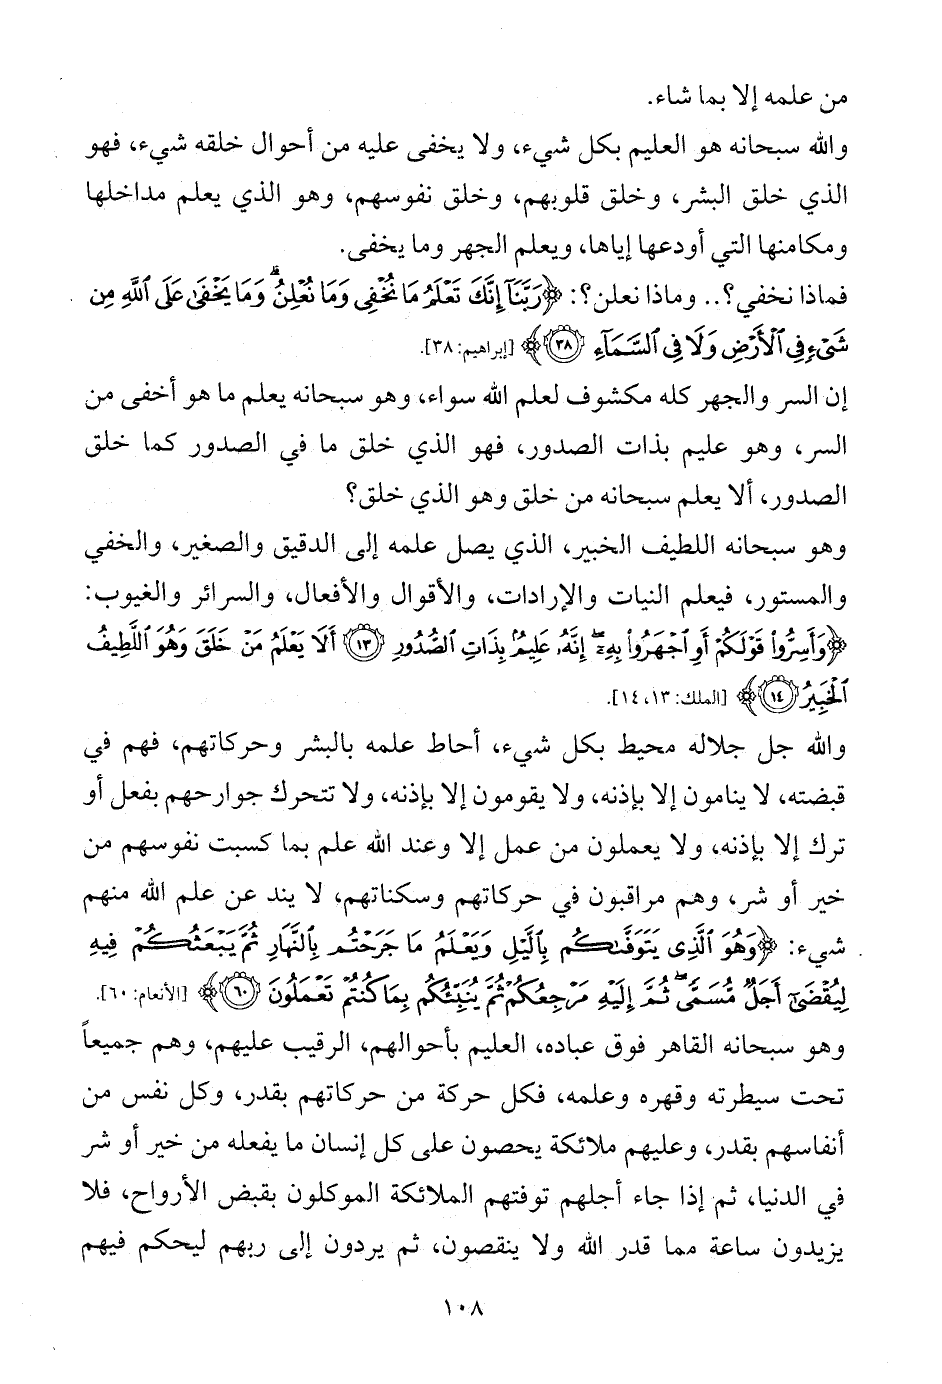 من علمه إلا بما شاء.
والله سبحانه هو العليم بكل شيء، ولا يخفى عليه من أحوال خلقه شيء، فهو
الذي خلق البشر، وخلق قلوبهم، وخلق نفوسهم، وهو الذي يعلم مداخلها
ومكامنها التي أودعها إياها، ويعلم الجهر وما يخفى.
فماذا نخفي؟.. وماذا نعلن؟: ﴿رَبَّنَآ إِنَّكَ تَعْلَمُ مَا نُخْفِى وَمَا نُعْلِنُ ۗ وَمَا يَخْفَىٰ عَلَى ٱللَّهِ مِن
شَىْءٍ فِى ٱلْأَرْضِ وَلَا فِى ٱلسَّمَآءِ ﴿٣٨﴾﴾ [إبراهيم: ٣٨].
إن السر والجهر كله مكشوف لعلم الله سواء، وهو سبحانه يعلم ما هو أخفى من
السر، وهو عليم بذات الصدور، فهو الذي خلق ما في الصدور كما خلق
الصدور، ألا يعلم سبحانه من خلق وهو الذي خلق؟
وهو سبحانه اللطيف الخبير، الذي يصل علمه إلى الدقيق والصغير، والخفي
والمستور، فيعلم النيات والإرادات، والأقوال والأفعال، والسرائر والغيوب:
﴿وَأَسِرُّوا۟ قَوْلَكُمْ أَوِ ٱجْهَرُوا۟ بِهِۦٓ ۖ إِنَّهُۥ عَلِيمٌۢ بِذَاتِ ٱلصُّدُورِ ﴿١٣﴾ أَلَا يَعْلَمُ مَنْ خَلَقَ وَهُوَ ٱللَّطِيفُ
ٱلْخَبِيرُ ﴿١٤﴾﴾ [الملك: ١٣، ١٤].
والله جل جلاله محيط بكل شيء، أحاط علمه بالبشر وحركاتهم، فهم في
قبضته، لا ينامون إلا بإذنه، ولا يقومون إلا بإذنه، ولا تتحرك جوارحهم بفعل أو
ترك إلا بإذنه، ولا يعملون من عمل إلا وعند الله علم بما كسبت نفوسهم من
خير أو شر، وهم مراقبون في حركاتهم وسكناتهم، لا يند عن علم الله منهم
شيء: ﴿وَهُوَ ٱلَّذِى يَتَوَفَّىٰكُم بِٱلَّيْلِ وَيَعْلَمُ مَا جَرَحْتُم بِٱلنَّهَارِ ثُمَّ يَبْعَثُكُمْ فِيهِ
لِيُقْضَىٰٓ أَجَلٌ مُّسَمًّى ۖ ثُمَّ إِلَيْهِ مَرْجِعُكُمْ ثُمَّ يُنَبِّئُكُم بِمَا كُنتُمْ تَعْمَلُونَ ﴿٦٠﴾﴾ [الأنعام: ٦٠].
وهو سبحانه القاهر فوق عباده، العليم بأحوالهم، الرقيب عليهم، وهم جميعاً
تحت سيطرته وقهره وعلمه، فكل حركة من حركاتهم بقدر، وكل نفس من
أنفاسهم بقدر، وعليهم ملائكة يحصون على كل إنسان ما يفعله من خير أو شر
في الدنيا، ثم إذا جاء أجلهم توفتهم الملائكة الموكلون بقبض الأرواح، فلا
يزيدون ساعة مما قدر الله ولا ينقصون، ثم يردون إلى ربهم ليحكم فيهم
١٠٨